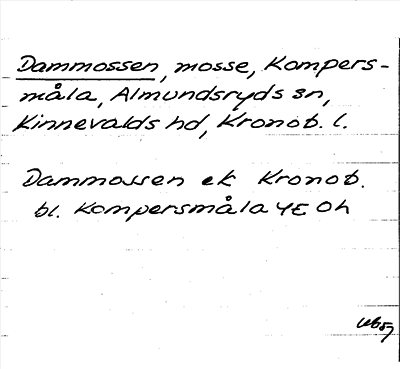 Dammossen, mosse, Kompers-
måla, Almundsryds sn,
Kinnevalds hd, Kronob. l.
Dammossen ek Kronob.
bl. Kompersmåla 4E Oh